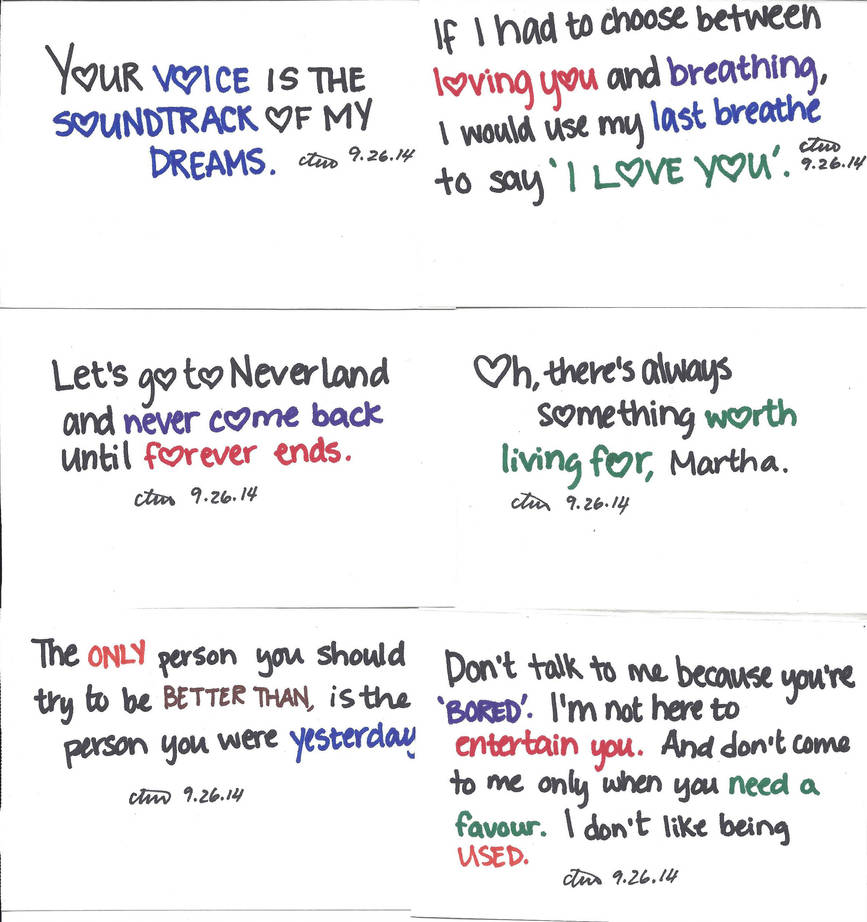 YOUR VOICE IS THE
SOUNDTRACK OF MY
DREAMS. ctw 9.26.14
If I had to choose between
loving you and breathing,
I would use my last breathe
to say 'I LOVE YOU'. ctw
9.26.14
Let's go to Neverland
and never come back
until forever ends.
ctw 9.26.14
Oh, there's always
something worth
living for, Martha.
ctw 9.26.14
The ONLY person you should
try to be BETTER THAN, is the
person you were yesterday
ctw 9.26.14
Don't talk to me because you're
'BORED'. I'm not here to
entertain you. And don't come
to me only when you need a
favour. I don't like being
USED.
ctw 9.26.14